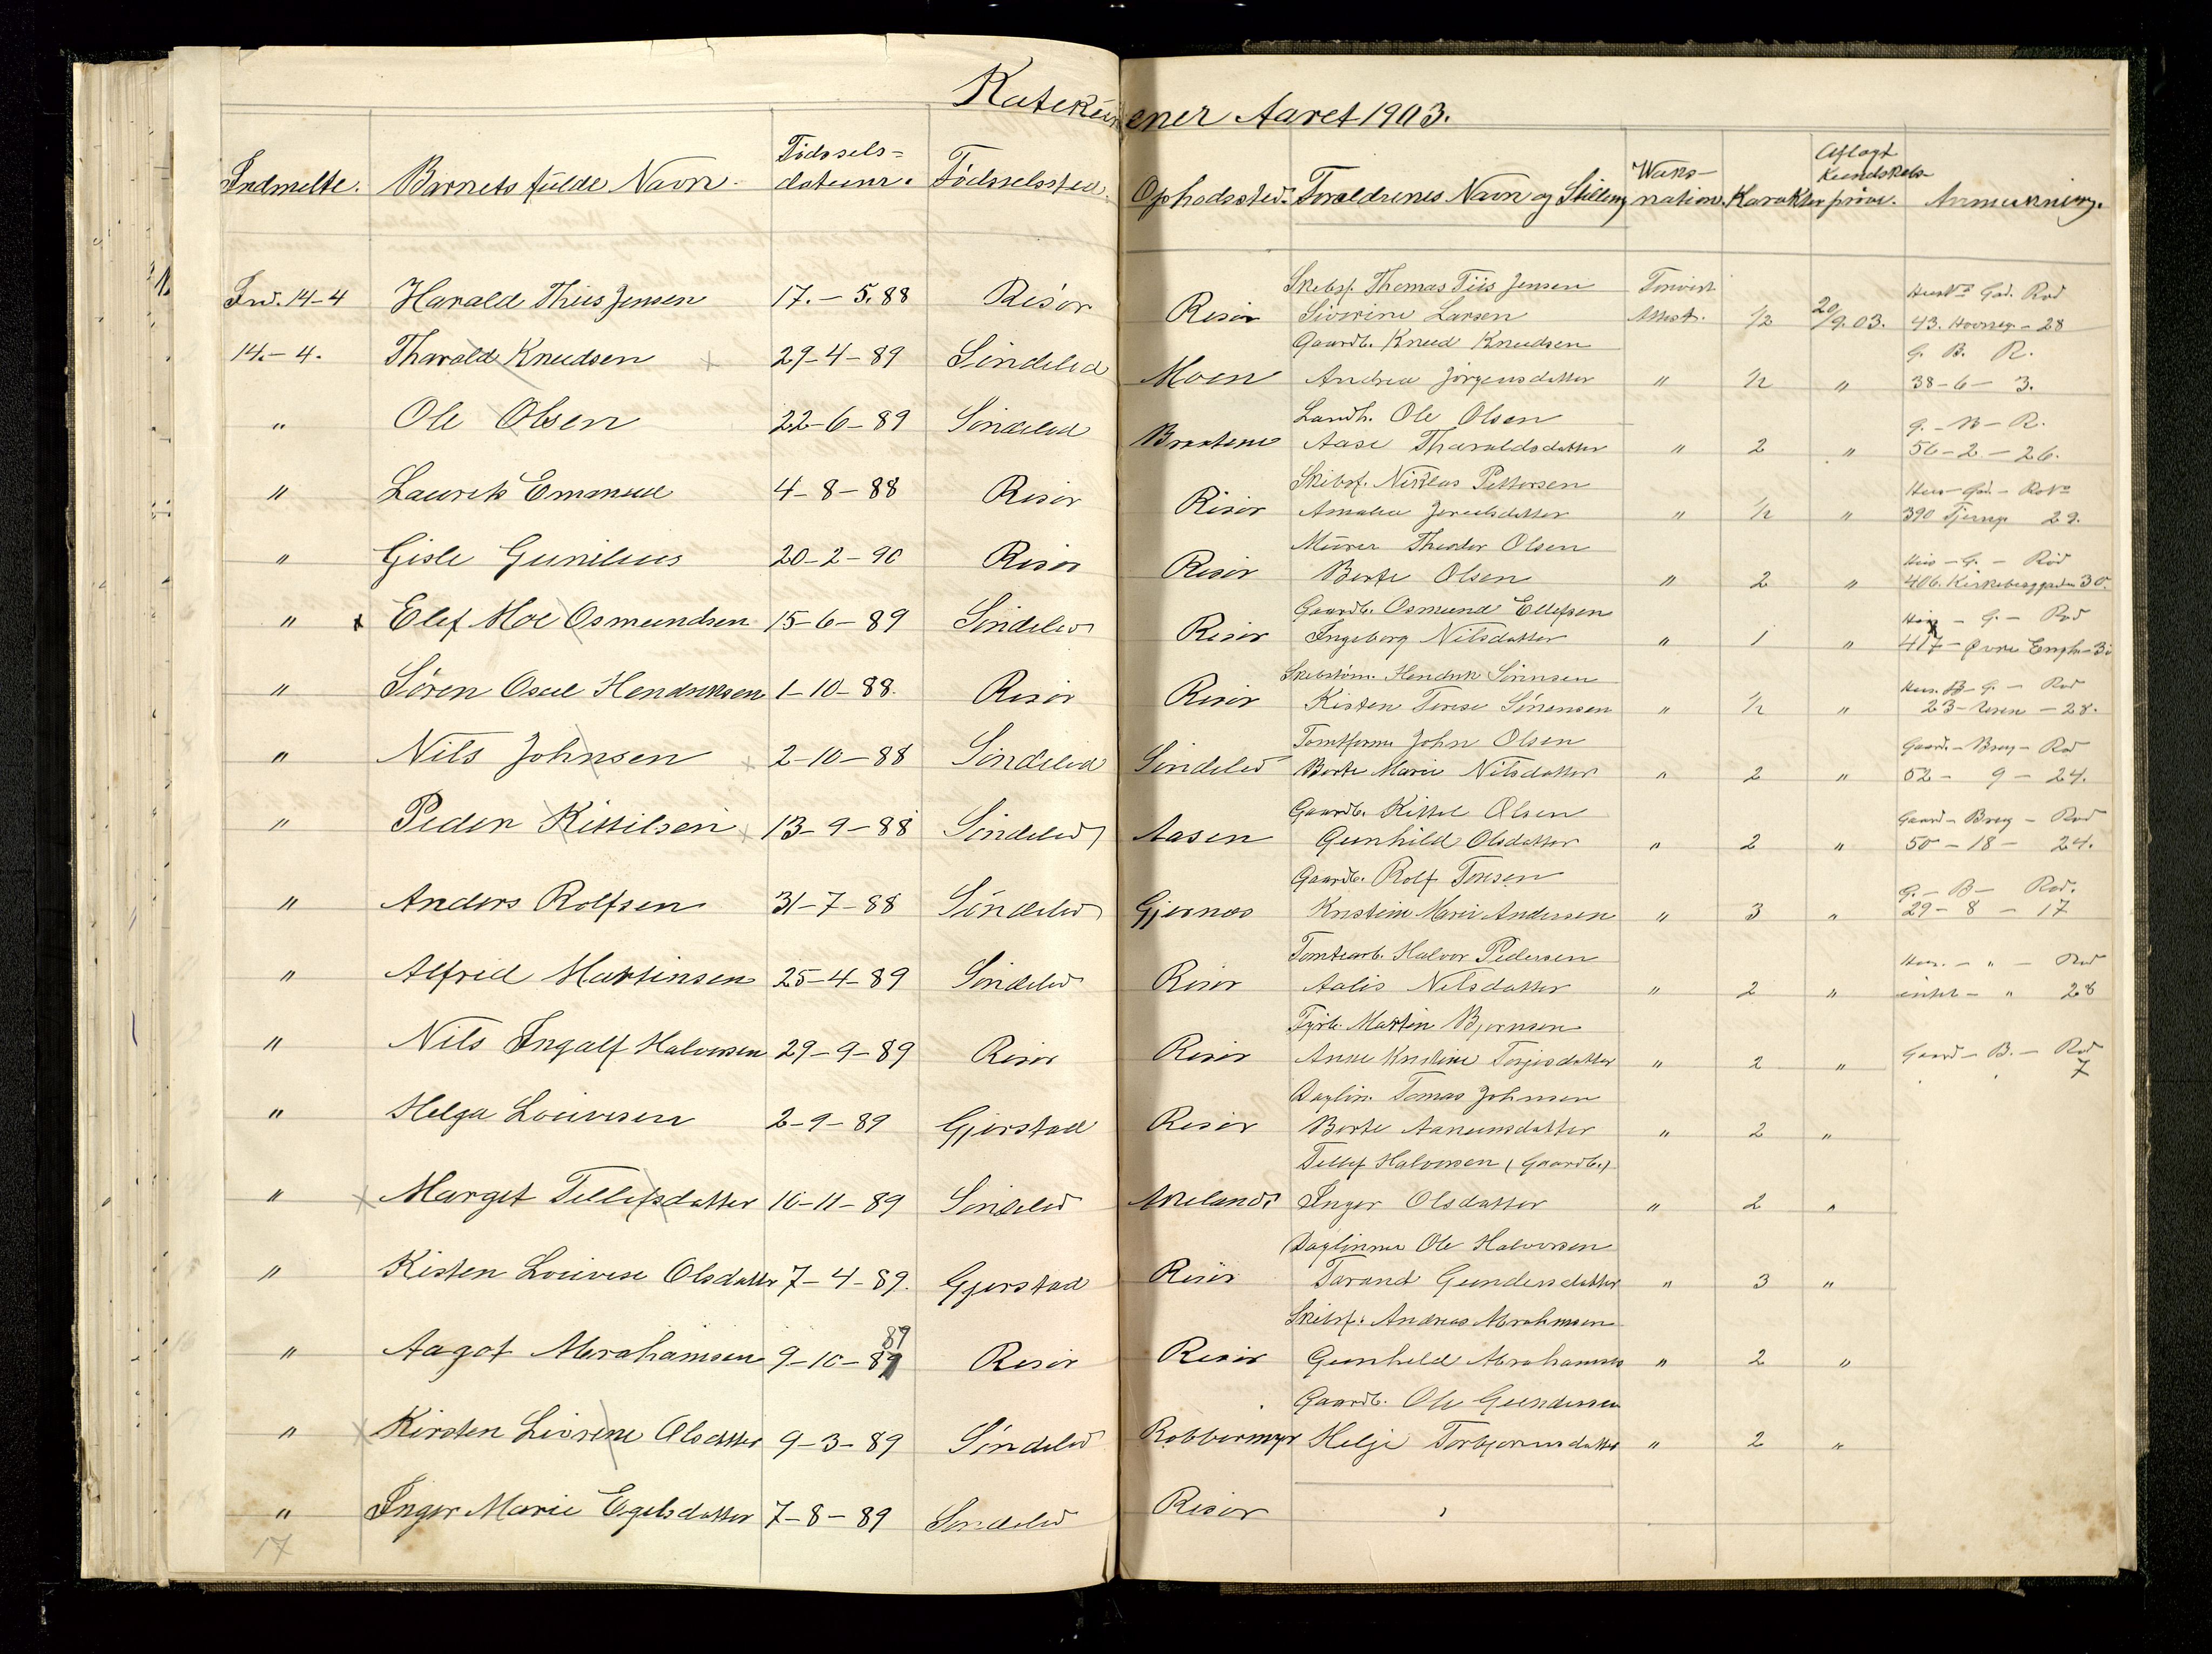 Katekumener Aaret 1903.
Indmeldte. Barnets fulde Navn. Fødsels= datum. Fødselssted. Opholdssted. Forældrenes Navn og Stilling Waks- nation. Karakter Aflagt Kundskabs- prøve. Anmerkning.
Ind. 14-4 Harald Thiis Jensen 17.-5.88 Risør Risør Skibsf. Thomas Tiis Jensen Siverine Larsen Forevist Attest. 1/2 20/9.03. 43. - 28
14.-4. Tharald Knudsen 29-4-89 Søndeled Moen Gaardb. Knud Knudsen Andrea Jørgensdatter " 1/2 " G. B. R. 38-6-3.
" Ole Olsen 22-6-89 Søndeled Braatene Landh. Ole Olsen Aase Tharaldsdatter " 2 " G.-B-R. 56-2-26.
" Laurits Emanuel 4-8-88 Risør Risør Skibsf. Niklas Pettersen Amalia " 1/2 " 390 29.
" Gisle Gunilius 20-2-90 Risør Risør Murer Theodor Olsen Berte Olsen " 2 " Hus-G.-Rod 406. Kirkeberggaden 30.
" x Elef Moe Osmundsen 15-6-89 Søndeled Risør Gaardb. Osmund Ellefsen Ingeborg Nilsdatter " 1 " Hus - G. - Rod 417 - Øvre
" Søren Osul Hendriksen 1-10-88. Risør Risør Hendrik Sørensen Kisten Terese Sørensen " 1/2 " Hus. B-G. - Rod 23- - 28.
" Nils Johnsen 2-10-88 Søndeled Søndeled John Olsen Berte Marie Nilsdatter " 2 " Gaard-Brug-Rod 52- 9 - 24.
" Peder Kittilsen 13-9-88 Søndeled Aasen Gaardb. Kittel Olsen Gunhild Olsdatter " 2 " Gaard-Brug-Rod 50-18-24.
" Anders Rolfsen 31-7-88 Søndeled Gjernes Gaardb. Rolf Toresen Kristine Marie Andersen " 3 " G.-B-Rod. 29-8-17
" Alfred Martinsen 25-4-89 Søndeled Risør Tomtearb. Halvor Pedersen Aalis Nilsdatter " 2 " Hus. - " - Rod " 28
" Nils Ingalf Halvorsen 29-9-89 Risør Risør Fyrb. Martin Bjørnsen Anne Kristine Terjesdatter " 2 " Gaard-B.-Rod 7
" Helga Louvisen 2-9-89 Gjerstad Risør Daglin. Tomas Johnsen Berte Aanunsdatter " 2 "
" Marget Tellefsdatter 10-11-89 Søndeled Akeland Tellef Halvorsen (Gaardb.) Inger Olsdatter " 2 "
" Kisten Louvise Olsdatter 7-4-89. Gjerstad Risør Daglinner Ole Halvorsen Tarand Gundersdatter " 3 "
" Aagot Abrahamsen 9-10-89 89 Risør Risør Skibsf. Andreas Abrahmsen Gunhild Abrahamsen " 2 "
" Kirsten Livrene Olsdatter 9-3-89 Søndeled Robbermyr Gaardb. Ole Gundersen Helje Torbjørnsdatter " 2 "
" Inger Marie Egelsdatter 7-8-89 Søndeled Risør
17